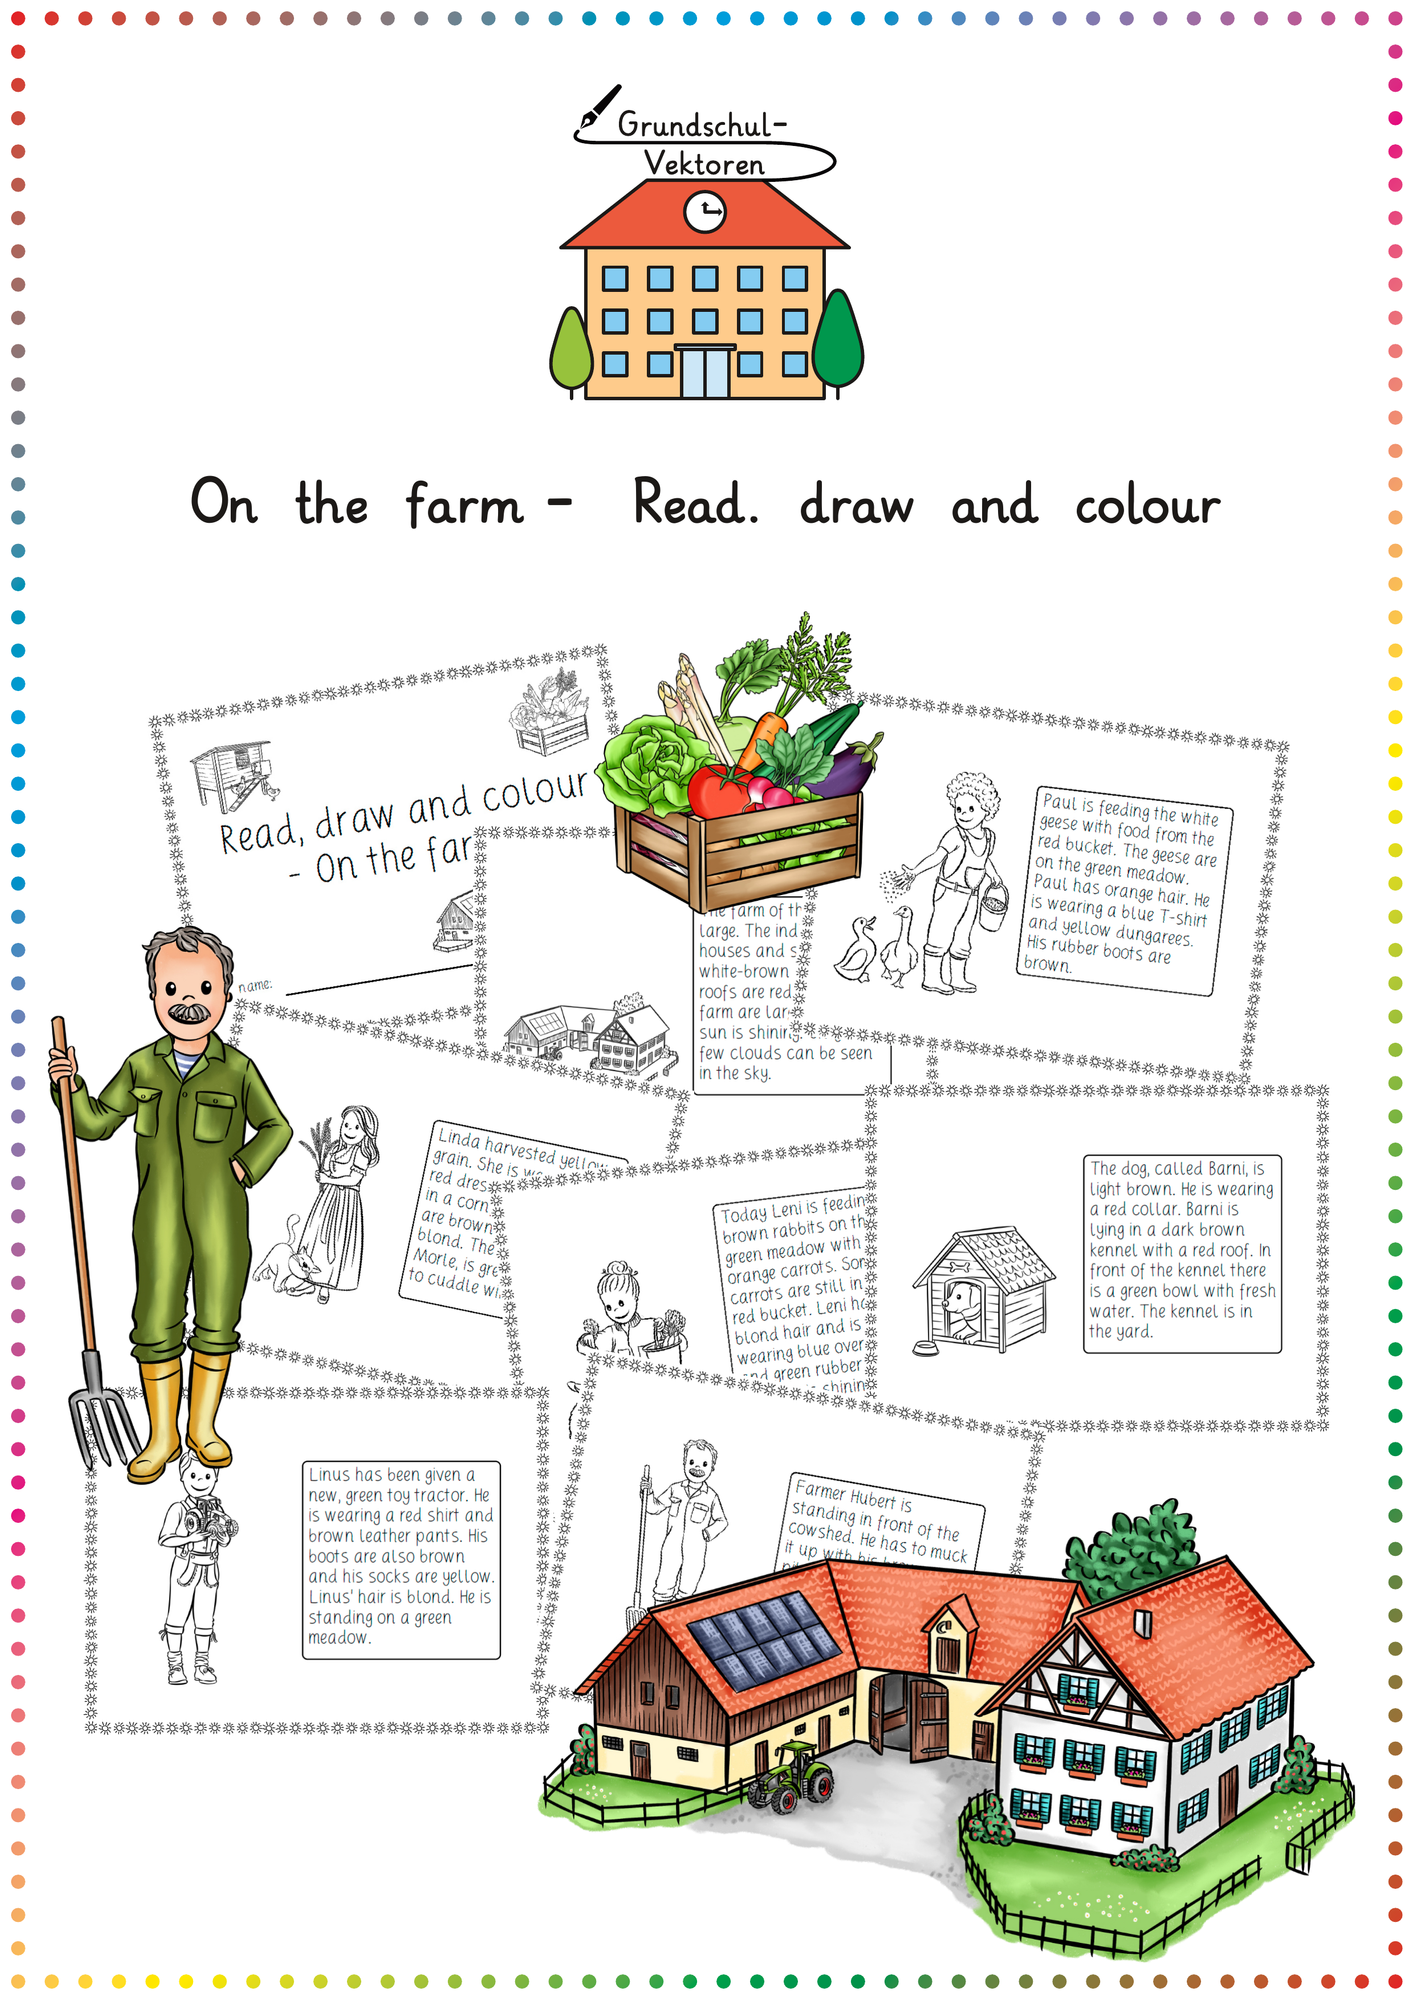 Grundschul-
Vektoren
On the farm - Read. draw and colour
Read, draw and colour
- On the far
name:
The farm of th
large. The ind
houses and s
white-brown
roofs are red
farm are lar
sun is shining.
few clouds can be seen
in the sky.
Paul is feeding the white
geese with food from the
red bucket. The geese are
on the green meadow.
Paul has orange hair. He
is wearing a blue T-shirt
and yellow dungarees.
His rubber boots are
brown.
Linda harvested yellow
grain. She is
red dres
in a corn
are brown
blond. The
Morle, is gre
to cuddle wi
Today Leni is feedin
brown rabbits on th
green meadow with
orange carrots. Som
carrots are still in
red bucket. Leni ha
blond hair and is
wearing blue over
and green rubber
shinin
The dog, called Barni, is
light brown. He is wearing
a red collar. Barni is
lying in a dark brown
kennel with a red roof. In
front of the kennel there
is a green bowl with fresh
water. The kennel is in
the yard.
Linus has been given a
new, green toy tractor. He
is wearing a red shirt and
brown leather pants. His
boots are also brown
and his socks are yellow.
Linus' hair is blond. He is
standing on a green
meadow.
Farmer Hubert is
standing in front of the
cowshed. He has to muck
it up with his